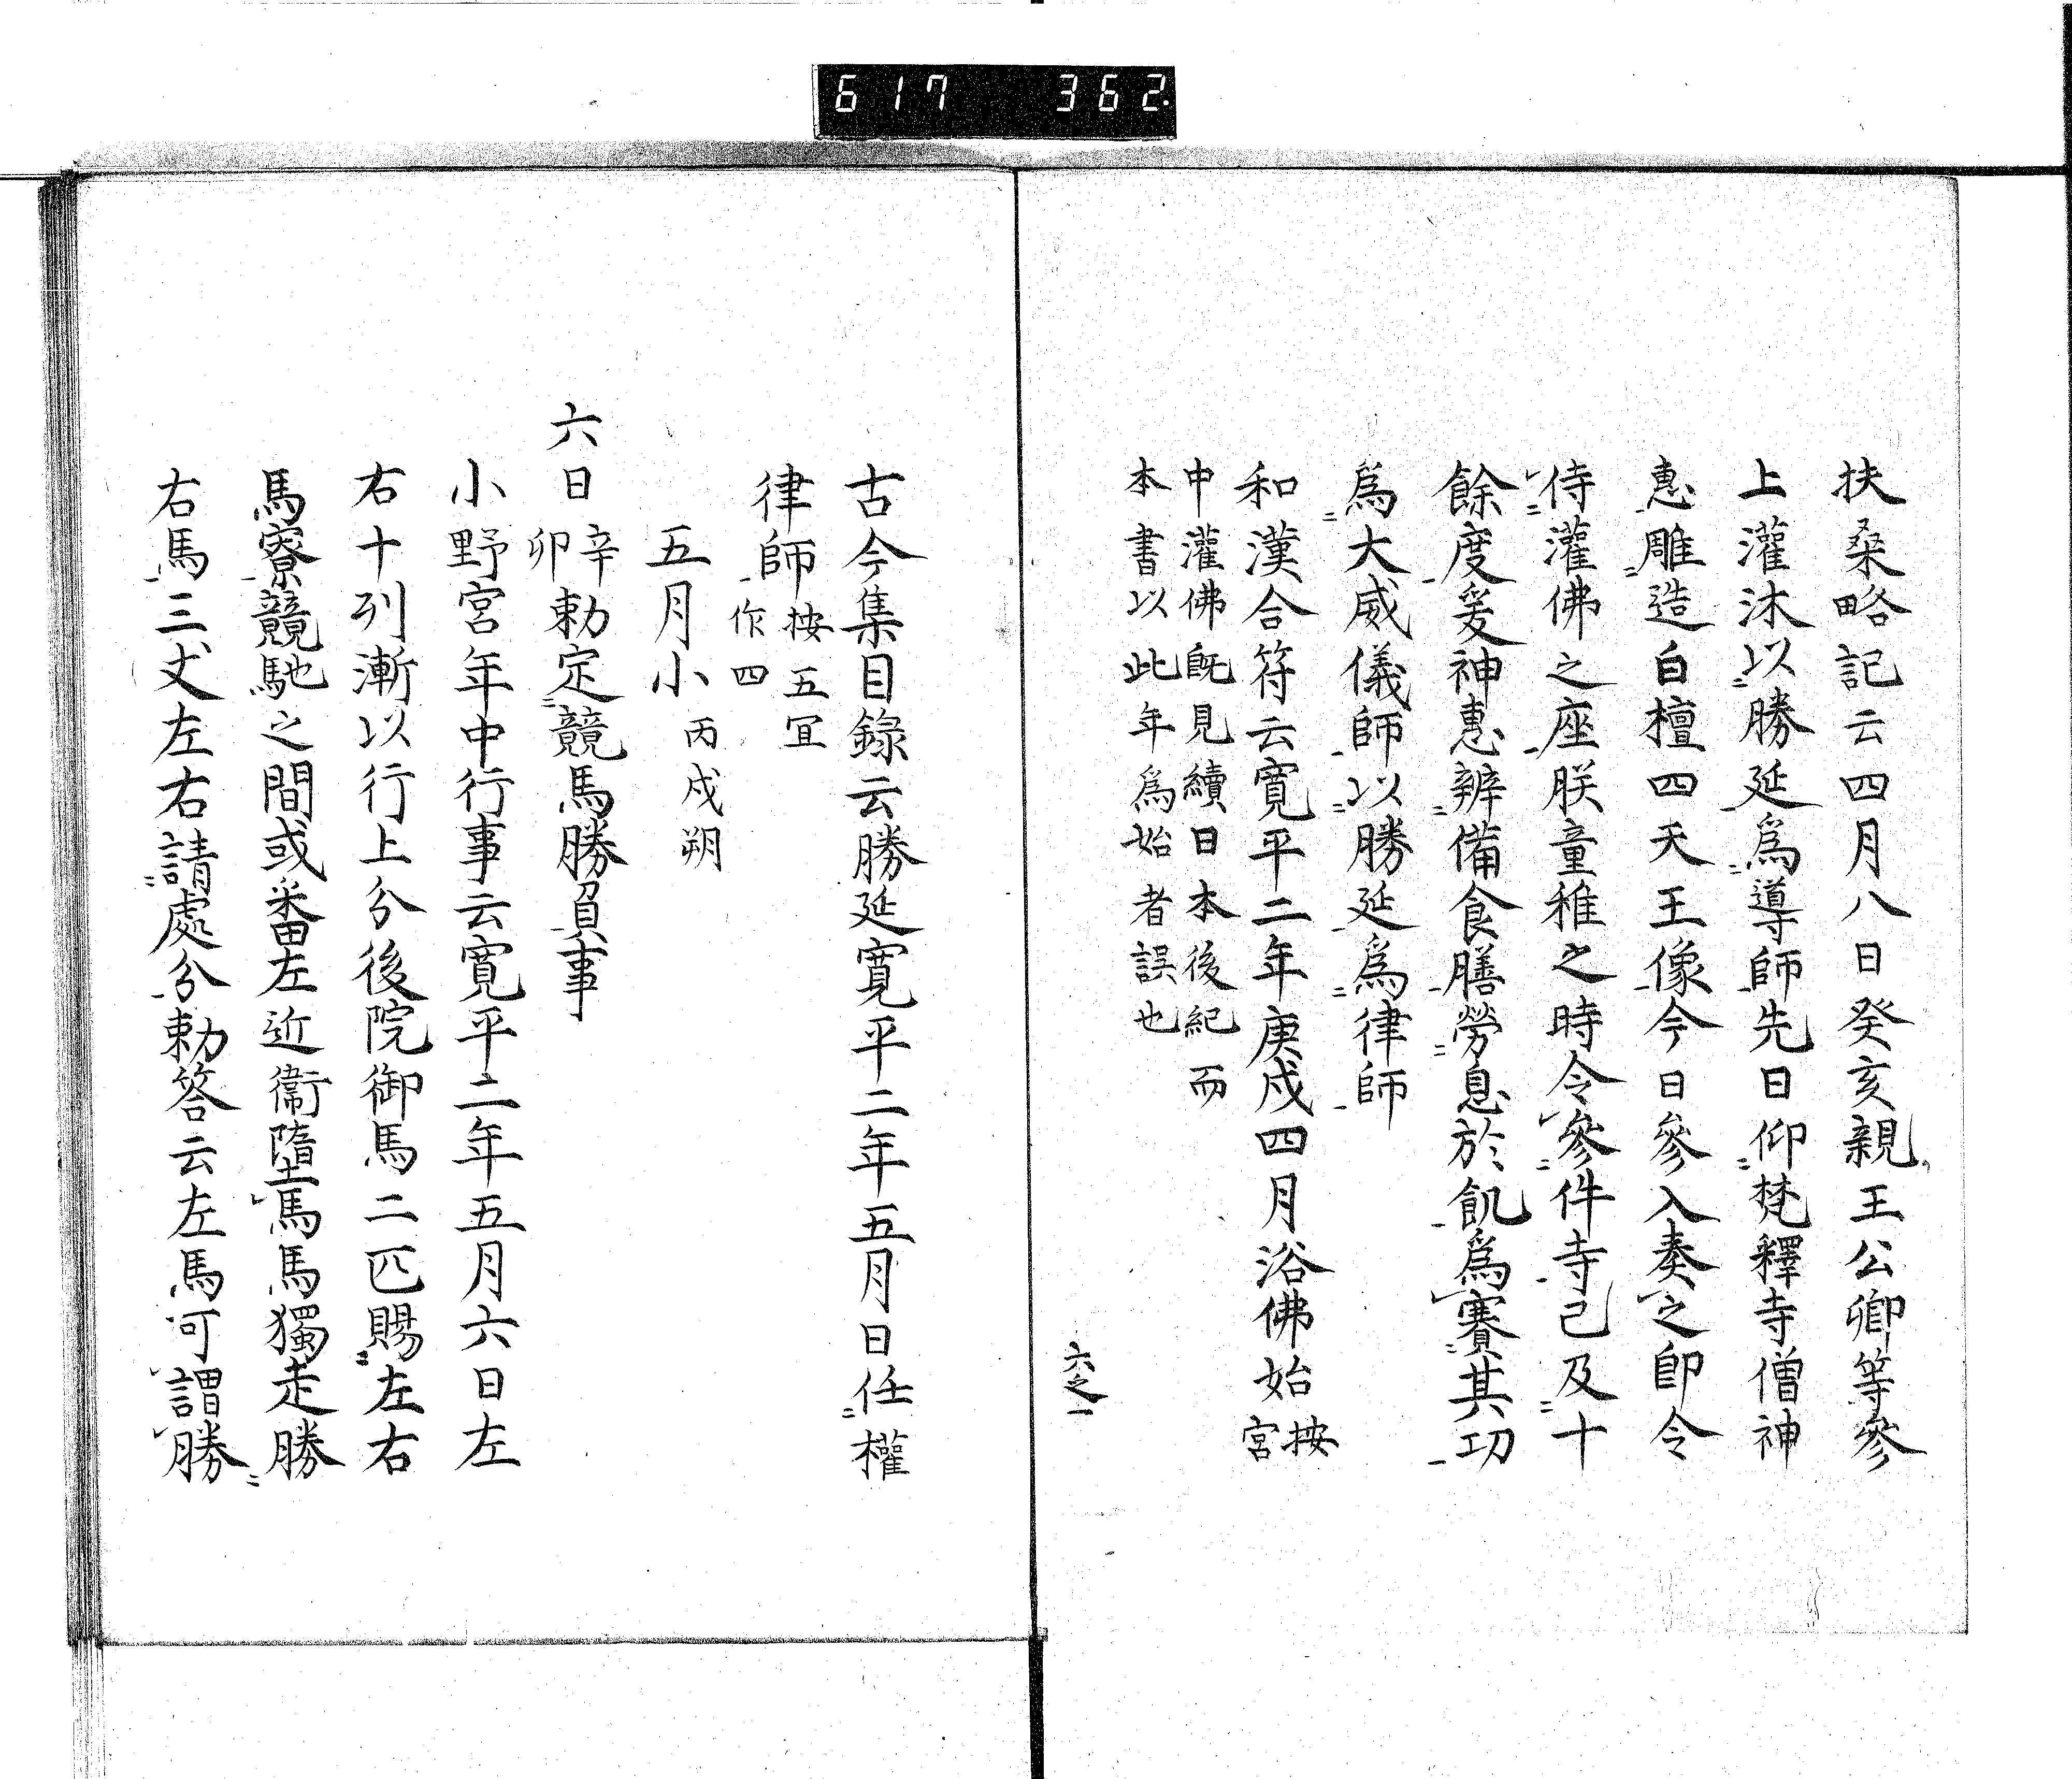 617 362.
扶桑略記云四月八日癸亥親王公卿等參
上灌沐以勝延爲導師先日仰梵釋寺僧神
惠雕造白檀四天王像今日參入奏之即令
侍灌佛之座朕童稚之時令參件寺己及十
餘度爰神惠辨備食膳勞息於飢爲賽其功
爲大威儀師以勝延爲律師
和漢合符云寛平二年庚戌四月浴佛始按宮
中灌佛既見續日本後紀而
本書以此年爲始者誤也
六之一
古今集目録云勝延寛平二年五月日任權
律師按五冝作四
五月小丙戌朔
六日辛卯勅定競馬勝負事
小野宮年中行事云寛平二年五月六日左
右十列漸以行上分後院御馬二匹賜左右
馬寮競馳之間或番左近衞墮馬馬獨走勝
右馬三丈左右請處分勅答云左馬可謂勝